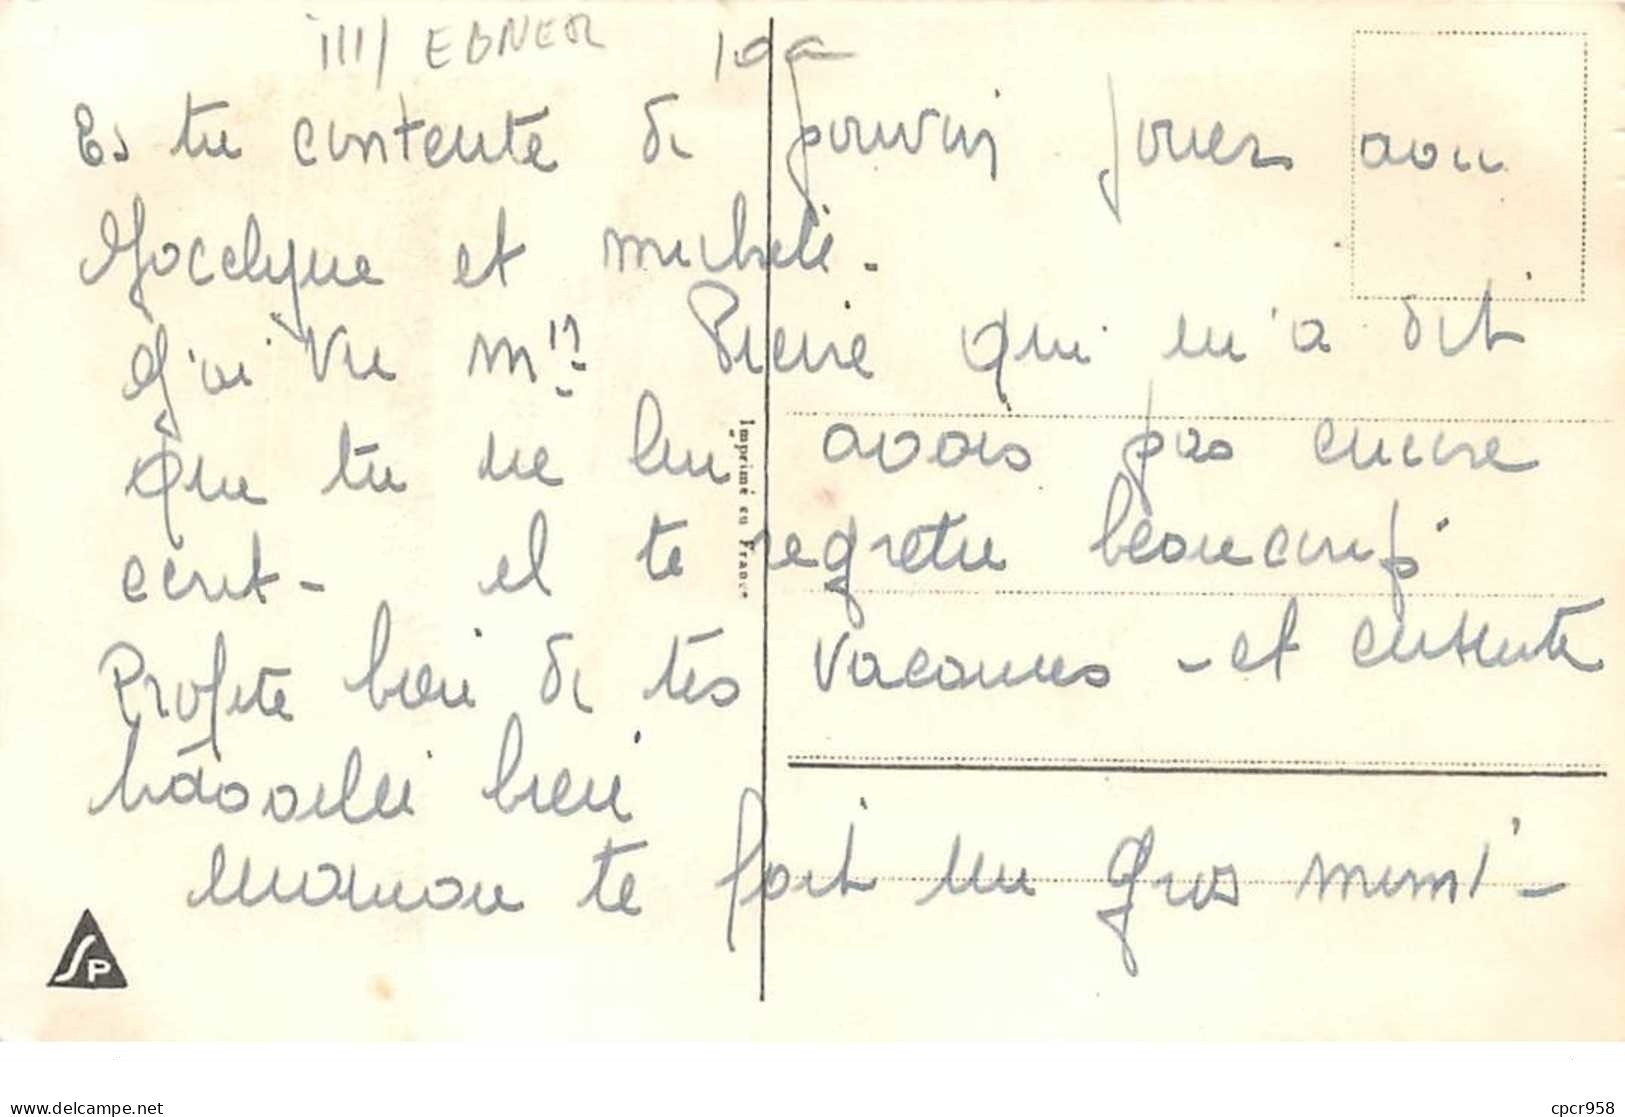 III/ EBNER 10a
Es tu contente de pouvoir jouer avec
Jocelyne et Michele.
J'ai vu Mlle Pierre qui m'a dit
que tu ne lui avais pas encore
ecrit - el te regrette beaucoup
Profite bien de tes vacances - et
bien
Maman te fait un gros mimi -
Imprimé en France
SP
cpcr958